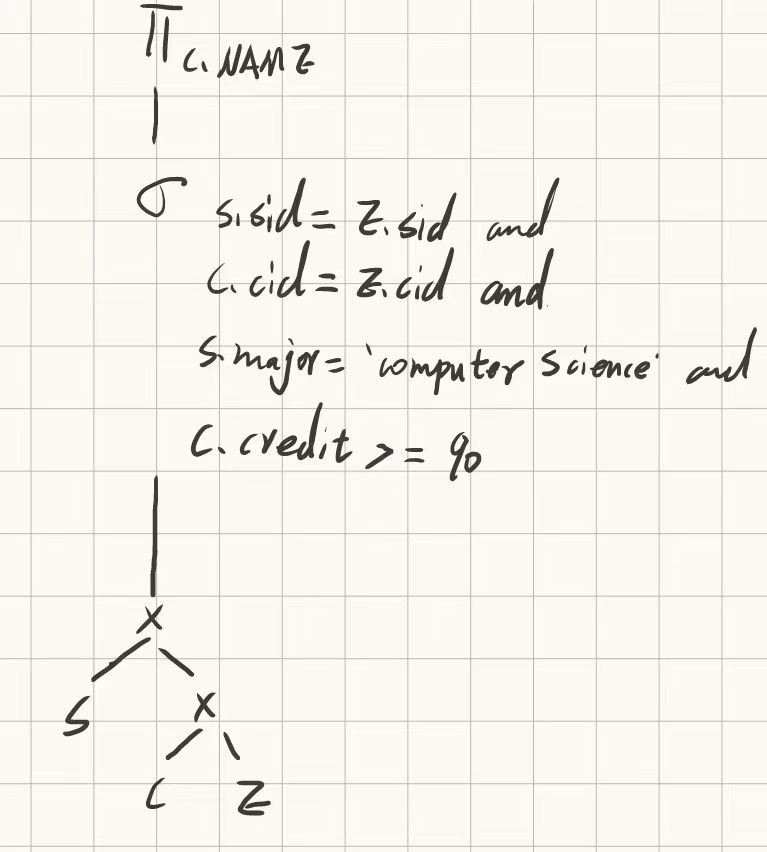 π C.NAME
σ S.sid = E.sid and
C.cid = E.cid and
S.major = 'computer science' and
C.credit >= 90
×
S ×
C E